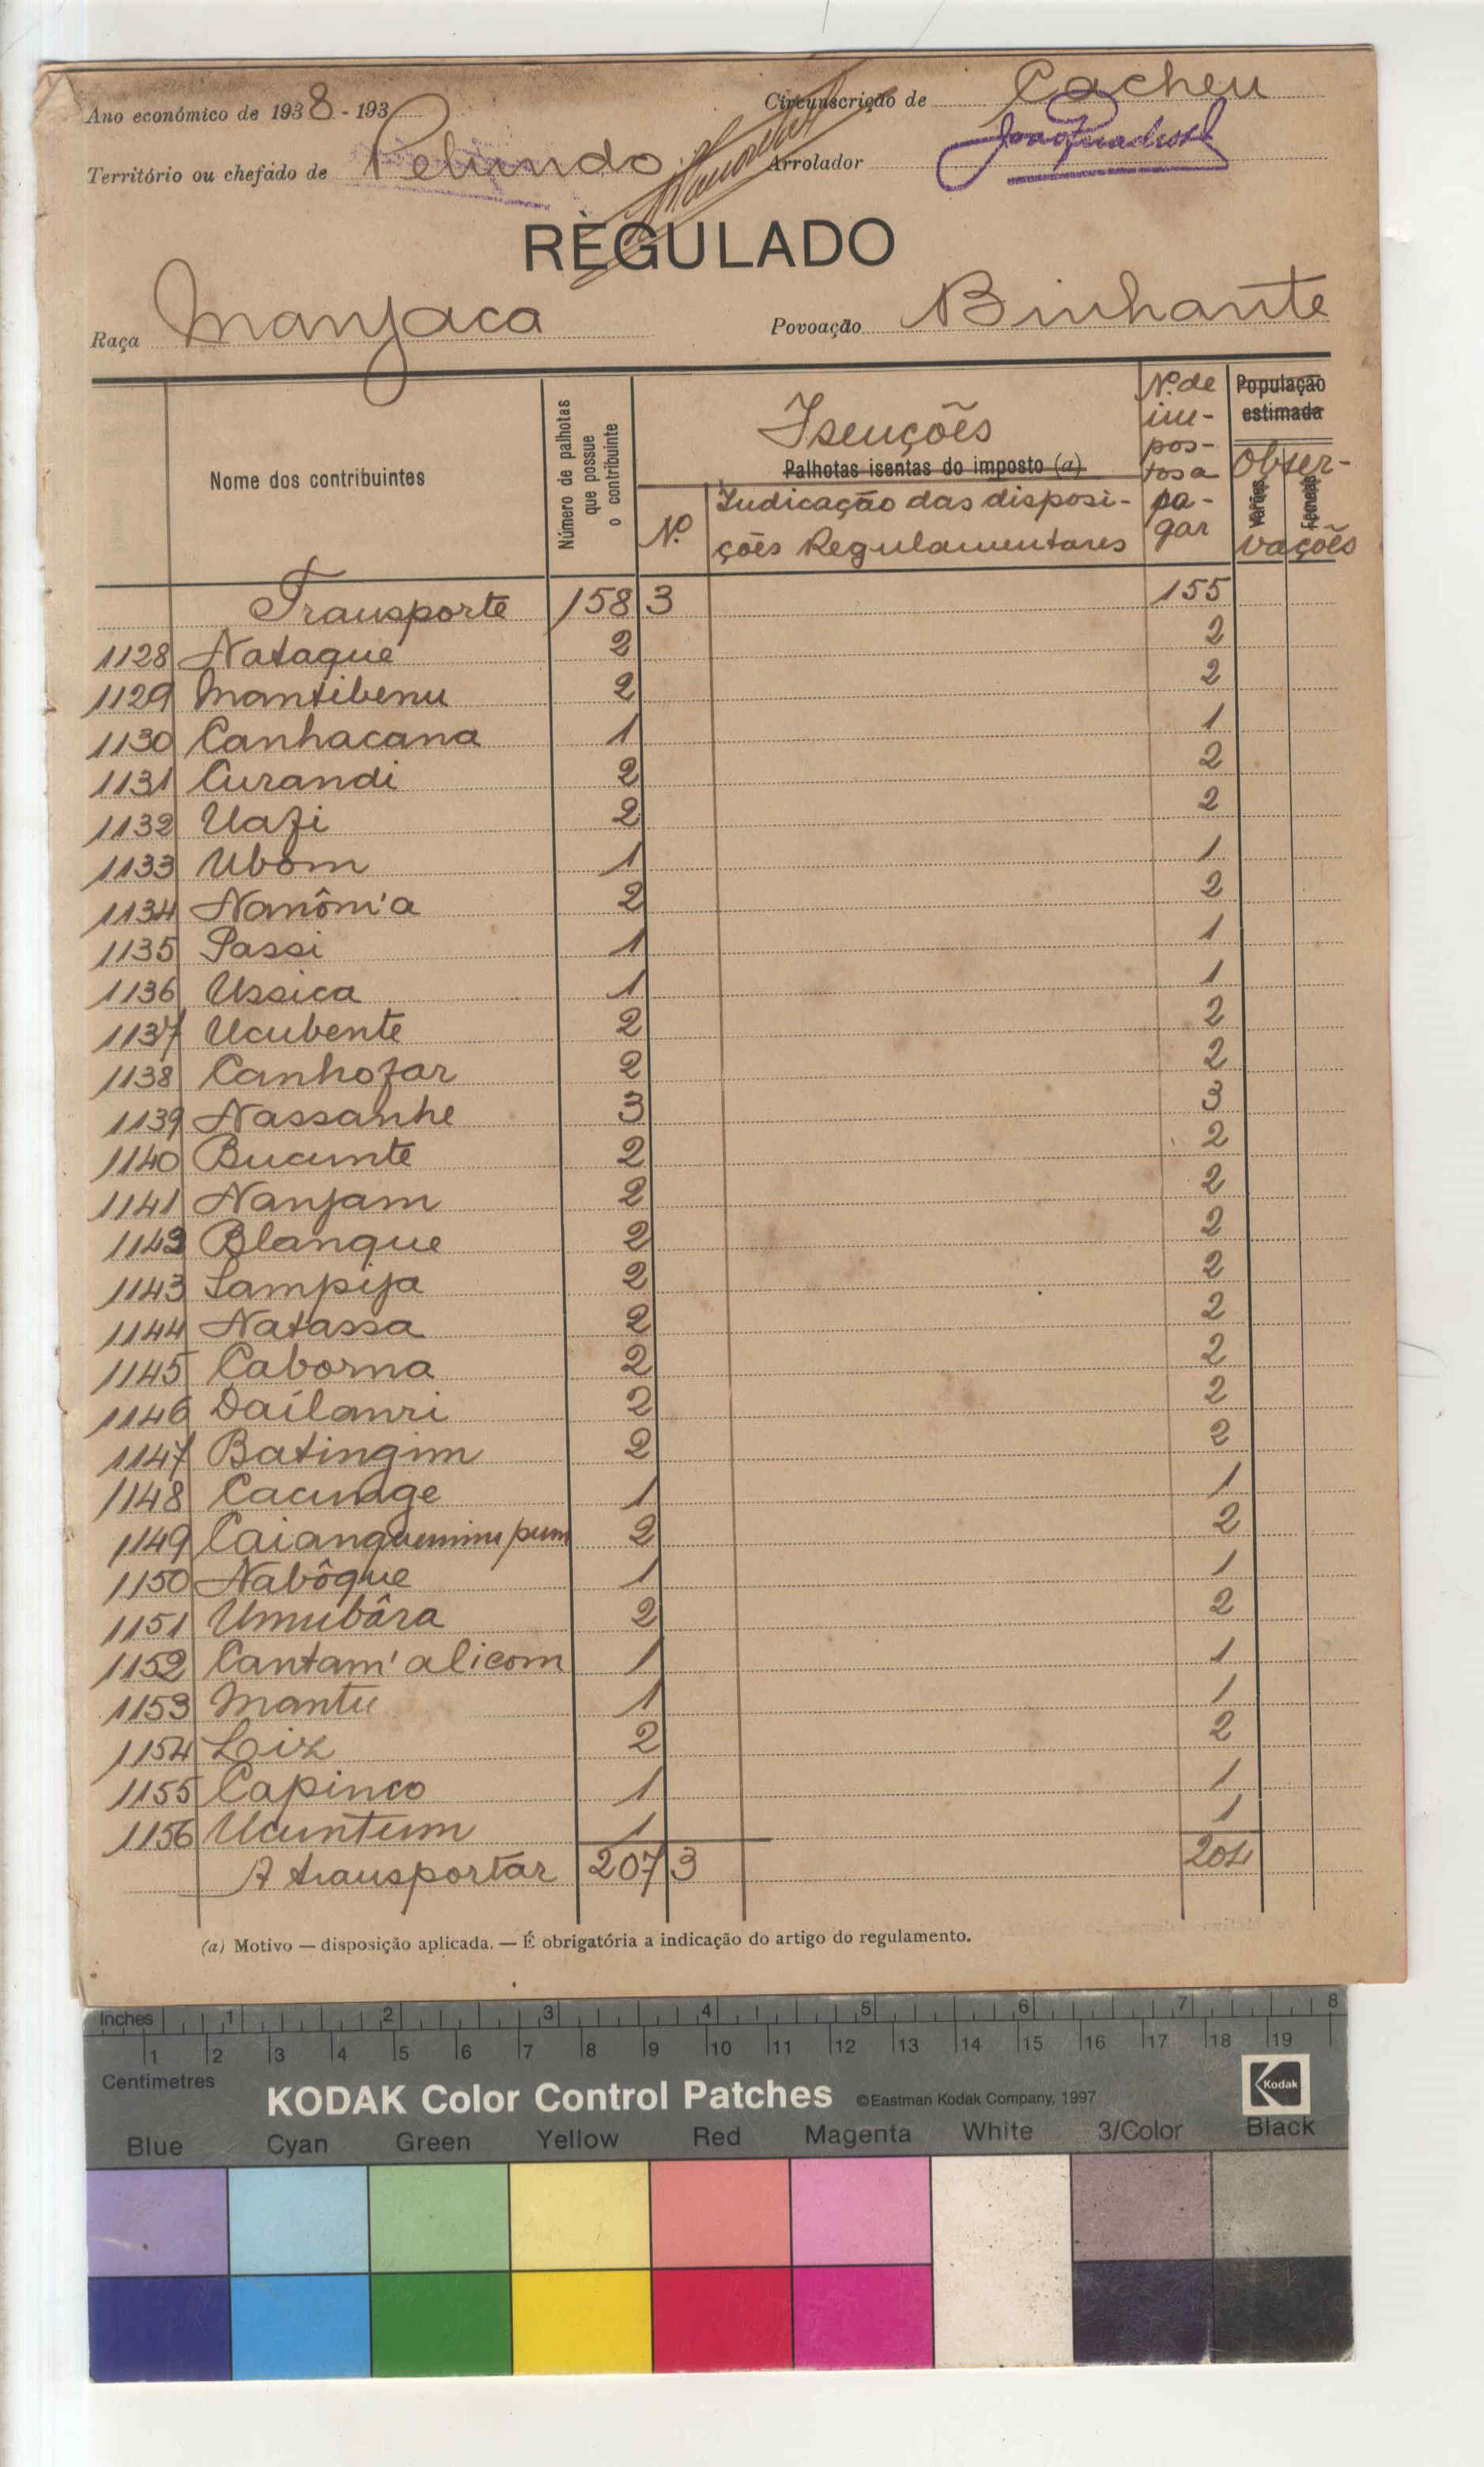 Ano económico de 1938-193
Circunscrição de Cacheu
Território ou chefado de Pelundo
Arrolador
REGULADO
Raça Manjaca
Povoação Binhante
Nome dos contribuintes
Número de palhotas que possue o contribuinte
Isenções
Palhotas isentas do imposto (a)
Nº
Indicação das disposi-
ções Regulamentares
Nº. de im-pos-tos a pa-gar
População estimada
Obser-vações
Varões
Femeas
Transporte 158 3 155
1128 Nataque 2 2
1129 Mantibenu 2 2
1130 Canhacana 1 1
1131 Curandi 2 2
1132 Uafi 2 2
1133 Ubom 1 1
1134 Nanôm'a 2 2
1135 Passi 1 1
1136 Ussica 1 1
1137 Ucubente 2 2
1138 Canhofar 2 2
1139 Nassanhe 3 3
1140 Bucunte 2 2
1141 Nanjam 2 2
1142 Blanque 2 2
1143 Lampija 2 2
1144 Natassa 2 2
1145 Caborna 2 2
1146 Daílanri 2 2
1147 Batingim 2 2
1148 Cacunage 1 1
1149 2 2
1150 Nabôque 1 1
1151 Umubâra 2 2
1152 Cantam'alicom 1 1
1153 Mantu 1 1
1154 Loiz 2 2
1155 Capinco 1 1
1156 Ucuntum 1 1
A transportar 207 3 204
(a) Motivo — disposição aplicada. — É obrigatória a indicação do artigo do regulamento.
Inches 1 2 3 4 5 6 7 8
1 2 3 4 5 6 7 8 9 10 11 12 13 14 15 16 17 18 19
Centimetres
KODAK Color Control Patches ©Eastman Kodak Company, 1997 Kodak
Blue Cyan Green Yellow Red Magenta White 3/Color Black